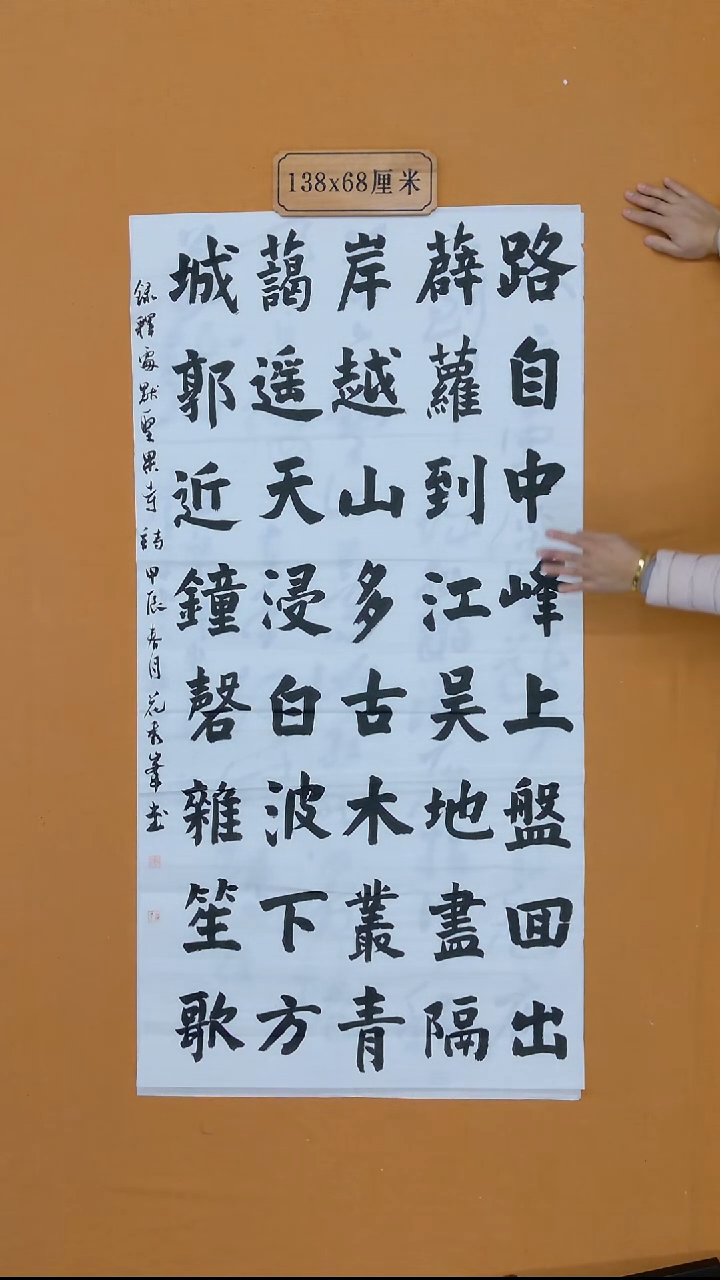 138x68厘米
路自中峰上盤囬出
薜蘿到江吴地盡隔
岸越山多古木叢青
藹遥天浸白波下方
城郭近鐘磬雜笙歌
録釋處默聖果寺詩 甲辰春月 秀峯書